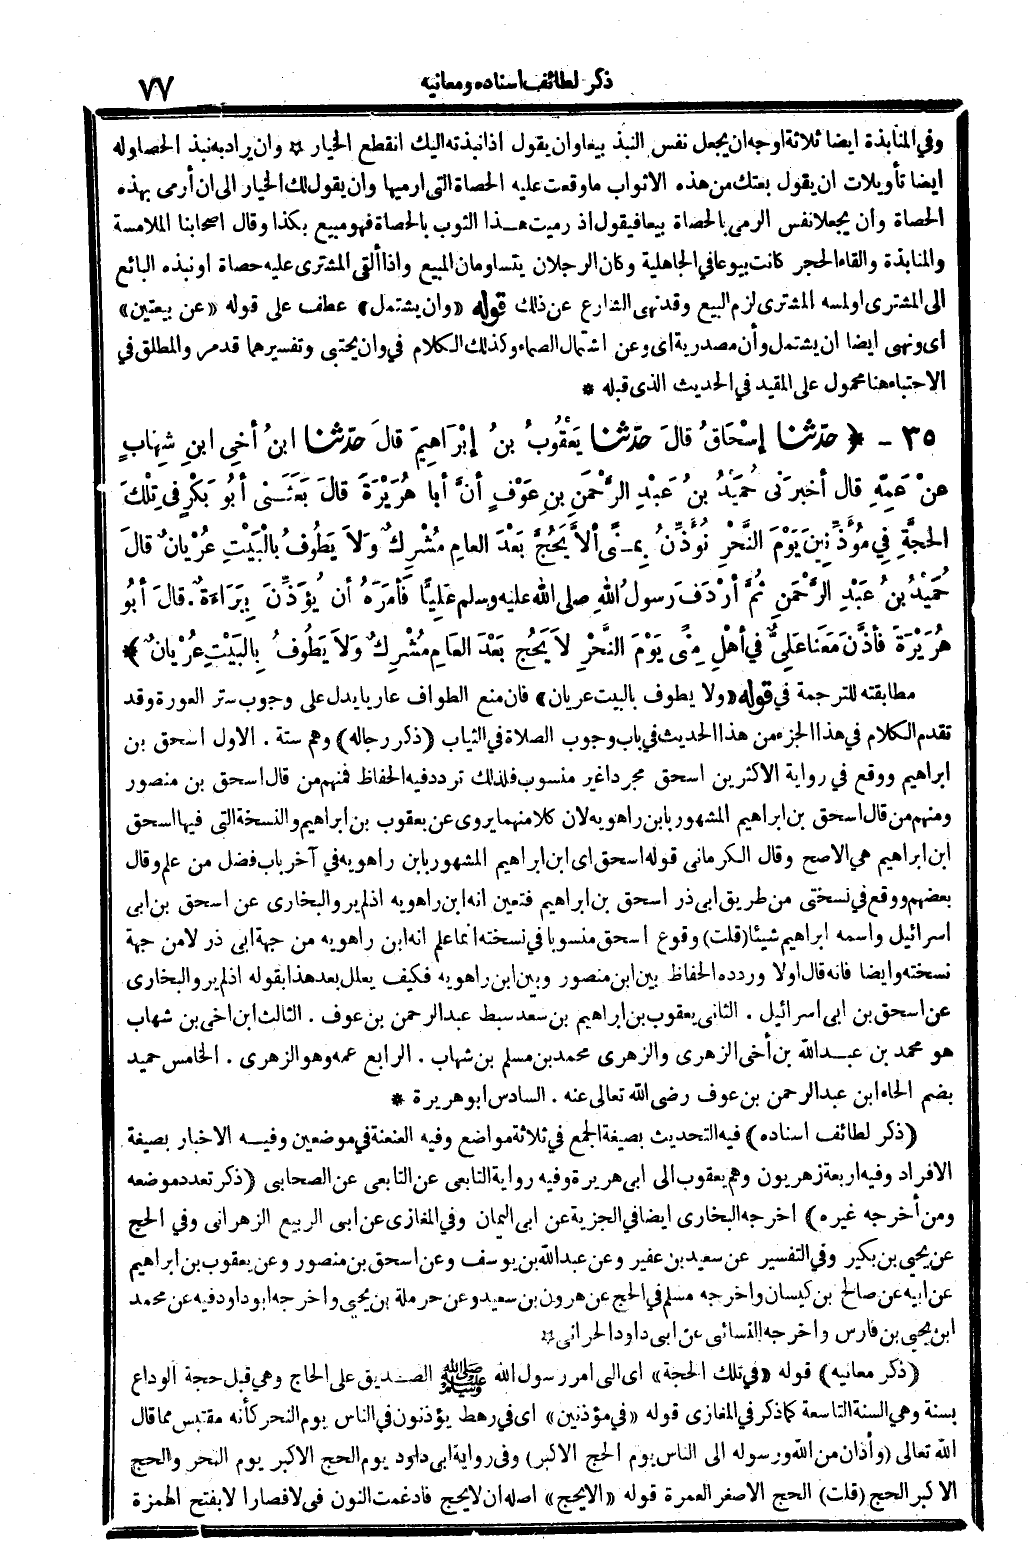 ٧٧
ذكر لطائف اسناده ومعانيه
وفي المنابذة ايضا ثلاثة اوجه ان يجعل نفس النبذ بيعا وان يقول اذا نبذته اليك انقطع الخيار ☆ وان يراد به نبذ الحصا وله
ايضا تأويلات ان يقول بعتك من هذه الاثواب ما وقعت عليه الحصاة التي ارميها وان يقول لك الخيار الى ان أرمى بهذه
الحصاة وان يجعلا نفس الرمى بالحصاة بيعا فيقول اذ رميت هـذا الثوب بالحصاة فهو مبيع بكذا وقال اصحابنا الملامسة
والمنابذة والقاء الحجر كانت بيوعا في الجاهلية وكان الرجلان يتساومان المبيع واذا ألقى المشترى عليه حصاة او نبذه البائع
الى المشترى او لمسه المشترى لزم البيع وقد نهى الشارع عن ذلك قوله «وان يشتمل» عطف على قوله «عن بيعتين»
اى ونهى ايضا ان يشتمل وأن مصدرية اى وعن اشتمال الصماء وكذلك الكلام في وان يحتبى وتفسيرهما قد مر والمطلق في
الاحتباء هنا محمول على المقيد في الحديث الذى قبله *
٣٥ - ﴿ حَدَّثَنَا إِسْحَاقُ قَالَ حَدَّثَنَا يَعْقُوبُ بنُ إِبْرَاهِيمَ قَالَ حَدَّثَنَا ابنُ أخِي ابنِ شِهَابٍ
عنْ عَمِّهِ قال أخبرَنى حُمَيْدُ بنُ عَبْدِ الرَّحْمَنِ بنِ عَوْفٍ أنَّ أبا هُرَيْرَةَ قالَ بَعَثَـنى أَبُو بَكْرٍ فى تِلْكَ
الحَجَّةِ فِي مُؤَذِّنِينَ يَوْمَ النَّحْرِ نُؤَذِّنُ بِمـنًى ألاَّ يَحُجَّ بَعْدَ العامِ مُشْرِكٌ وَلاَ يَطُوفُ بالْبَيْتِ عُرْيانٌ قالَ
حُمَيْدُ بنُ عَبْدِ الرَّحْمَنِ ثُمَّ أرْدَفَ رَسولُ اللهِ صلى الله عليه وسلم عَلِيًّا فَأمَرَهُ أن يُؤَذِّنَ بِبَرَاءَةٌ . قالَ أبُو
هُرَيْرَةَ فَأذَّنَ مَعَنا عَلِىٌّ في أهْلِ مِنًى يَوْمَ النَّحْرِ لاَ يَحُجُّ بَعْدَ العَامِ مُشْرِكٌ وَلاَ يَطُوفُ بِالبَيْتِ عُرْيانٌ ﴾ *
مطابقته للترجمة في قوله «ولا يطوف بالبيت عريان» فان منع الطواف عاريا يدل على وجوب ستر العورة وقد
تقدم الكلام في هذا الجزء من هذا الحديث في باب وجوب الصلاة في الثياب (ذكر رجاله) وهم ستة . الاول اسحق بن
ابراهيم ووقع في رواية الاكثرين اسحق مجردا غير منسوب فلذلك تردد فيه الحفاظ فمنهم من قال اسحق بن منصور
ومنهم من قال اسحق بن ابراهيم المشهور بابن راهويه لان كلا منهما يروى عن يعقوب بن ابراهيم والنسخة التي فيها اسحق
ابن ابراهيم هي الاصح وقال الكرمانى قوله اسحق اى ابن ابراهيم المشهور بابن راهويه في آخر باب فضل من علم وقال
بعضهم ووقع في نسختى من طريق ابى ذر اسحق بن ابراهيم فتعين انه ابن راهويه اذ لم يرو البخارى عن اسحق بن ابى
اسرائيل واسمه ابراهيم شيئا (قلت) وقوع اسحق منسوبا في نسخته انما علم انه ابن راهويه من جهة ابى ذر لا من جهة
نسخته وايضا فانه قال اولا وردده الحفاظ بين ابن منصور وبين ابن راهويه فكيف يعلل بعد هذا بقوله اذ لم يرو البخارى
عن اسحق بن ابى اسرائيل . الثانى يعقوب بن ابراهيم بن سعد سبط عبد الرحمن بن عوف . الثالث ابن اخى بن شهاب
هو محمد بن عبـد الله بن أخى الزهرى والزهرى محمد بن مسلم بن شهاب . الرابع عمه وهو الزهرى . الخامس حميد
بضم الحاء ابن عبد الرحمن بن عوف رضى الله تعالى عنه . السادس ابو هريرة *
(ذكر لطائف اسناده) فيه التحديث بصيغة الجمع في ثلاثة مواضع وفيه العنعنة في موضعين وفيـه الاخبار بصيغة
الافراد وفيه اربعة زهريون وهم يعقوب الى ابى هريرة وفيه رواية التابعى عن التابعى عن الصحابى (ذكر تعدد موضعه
ومن أخرجه غيره) اخرجه البخارى ايضا في الجزية عن ابى اليمان وفي المغازى عن ابى الربيع الزهرانى وفي الحج
عن يحيى بن بكير وفي التفسير عن سعيد بن عفير وعن عبد الله بن يوسف وعن اسحق بن منصور وعن يعقوب بن ابراهيم
عن ابيه عن صالح بن كيسان واخرجه مسلم في الحج عن هرون بن سعيد وعن حرملة بن يحيى واخرجه ابو داود فيه عن محمد
ابن يحيى بن فارس واخرجه النسائى عن ابى داود الحرانى ☆
(ذكر معانيه) قوله «في تلك الحجة» اى الى امر رسول الله ﷺ الصـديق على الحاج وهي قبل حجة الوداع
بسنة وهي السنة التاسعة كما ذكر في المغازى قوله «في مؤذنين» اى في رهط يؤذنون في الناس يوم النحر كأنه مقتبس مما قال
الله تعالى (وأذان من الله ورسوله الى الناس يوم الحج الاكبر) وفى رواية ابى داود يوم الحج الاكبر يوم النحر والحج
الاكبر الحج (قلت) الحج الاصغر العمرة قوله «الا يحج» اصله ان لا يحج فادغمت النون في لا فصار الا بفتح الهمزة